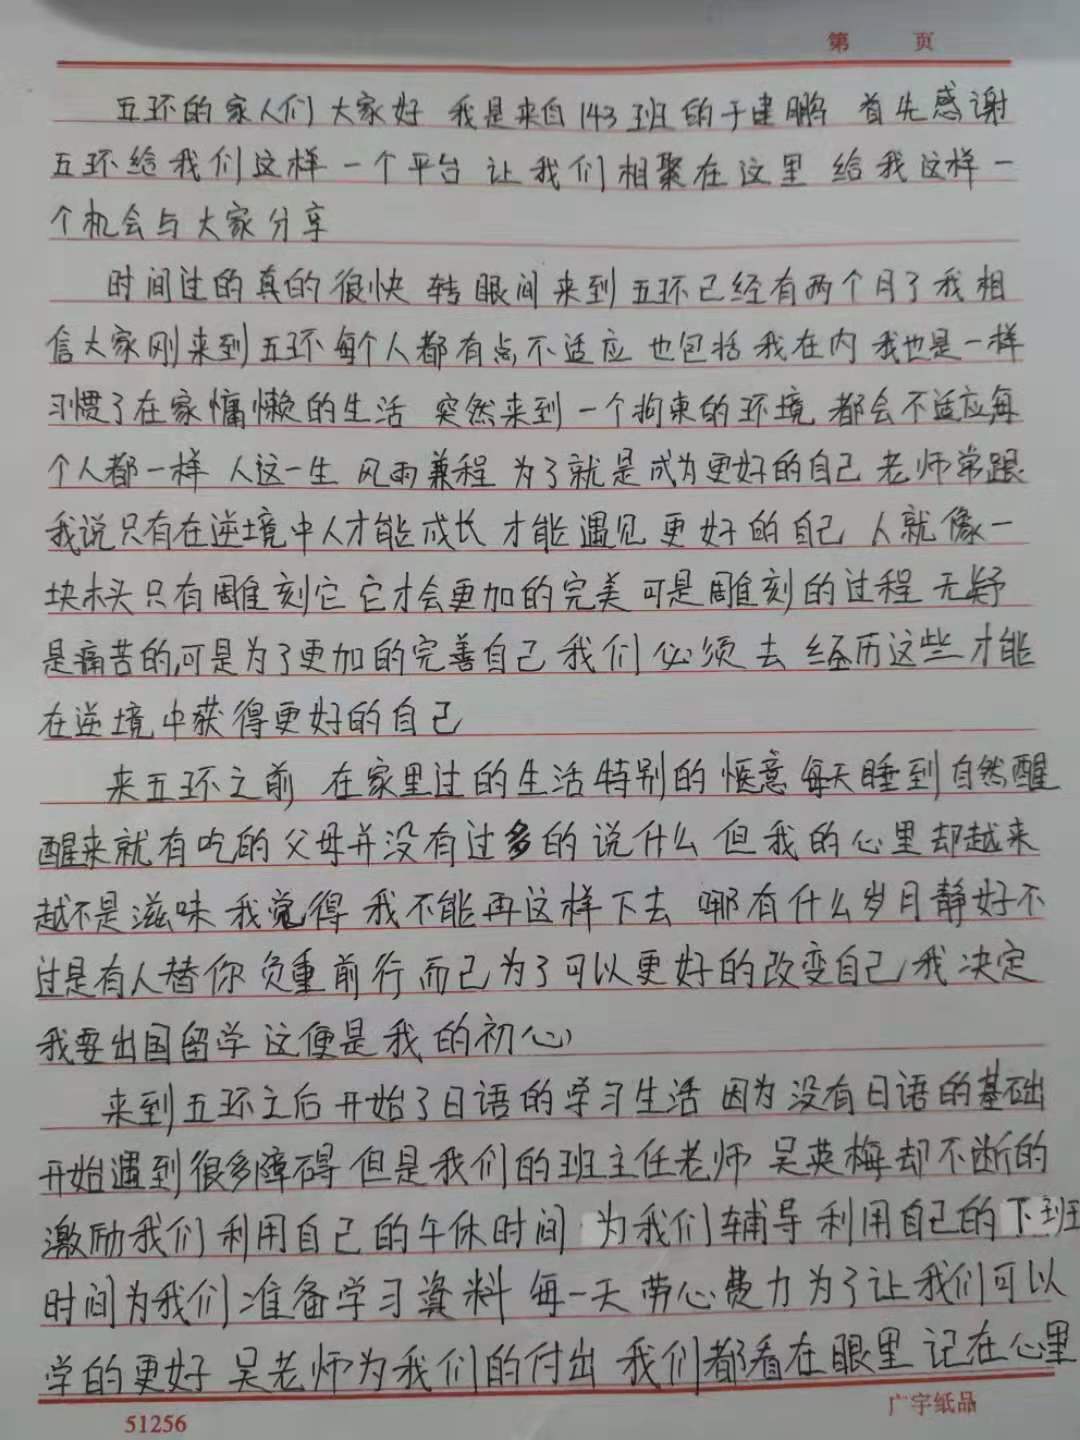 第 页
五环的家人们 大家好 我是来自143班的于建鹏 首先感谢
五环给我们这样一个平台 让我们相聚在这里 给我这样一
个机会与大家分享
时间过的真的很快 转眼间来到五环已经有两个月了我相
信大家刚来到五环每个人都有点不适应 也包括我在内 我也是一样
习惯了在家慵懒的生活 突然来到一个拘束的环境 都会不适应每
个人都一样 人这一生 风雨兼程 为了就是成为更好的自己 老师常跟
我说只有在逆境中人才能成长 才能遇见更好的自己 人就像一
块木头只有雕刻它 它才会更加的完美 可是雕刻的过程 无疑
是痛苦的,可是为了更加的完善自己 我们必须去经历这些才能
在逆境中获得更好的自己
来五环之前 在家里过的生活特别的惬意 每天睡到自然醒
醒来就有吃的 父母并没有过多的说什么 但我的心里却越来
越不是滋味 我觉得 我不能再这样下去 哪有什么岁月静好不
过是有人替你负重前行而已为了可以更好的改变自己,我决定
我要出国留学 这便是我的初心
来到五环之后 开始了日语的学习生活 因为没有日语的基础
开始遇到很多障碍 但是我们的班主任老师 吴英梅却不断的
激励我们 利用自己的午休时间 为我们辅导 利用自己的下班
时间为我们准备学习资料 每一天 带心费力为了让我们可以
学的更好 吴老师为我们的付出 我们都看在眼里 记在心里
51256
广宇纸品